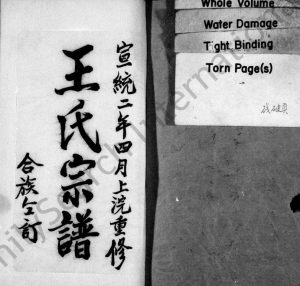 宣統二年四月上浣重修
王氏宗譜
合族仝訂
Whole Volume
Water Damage
Tight Binding
Torn Page(s)